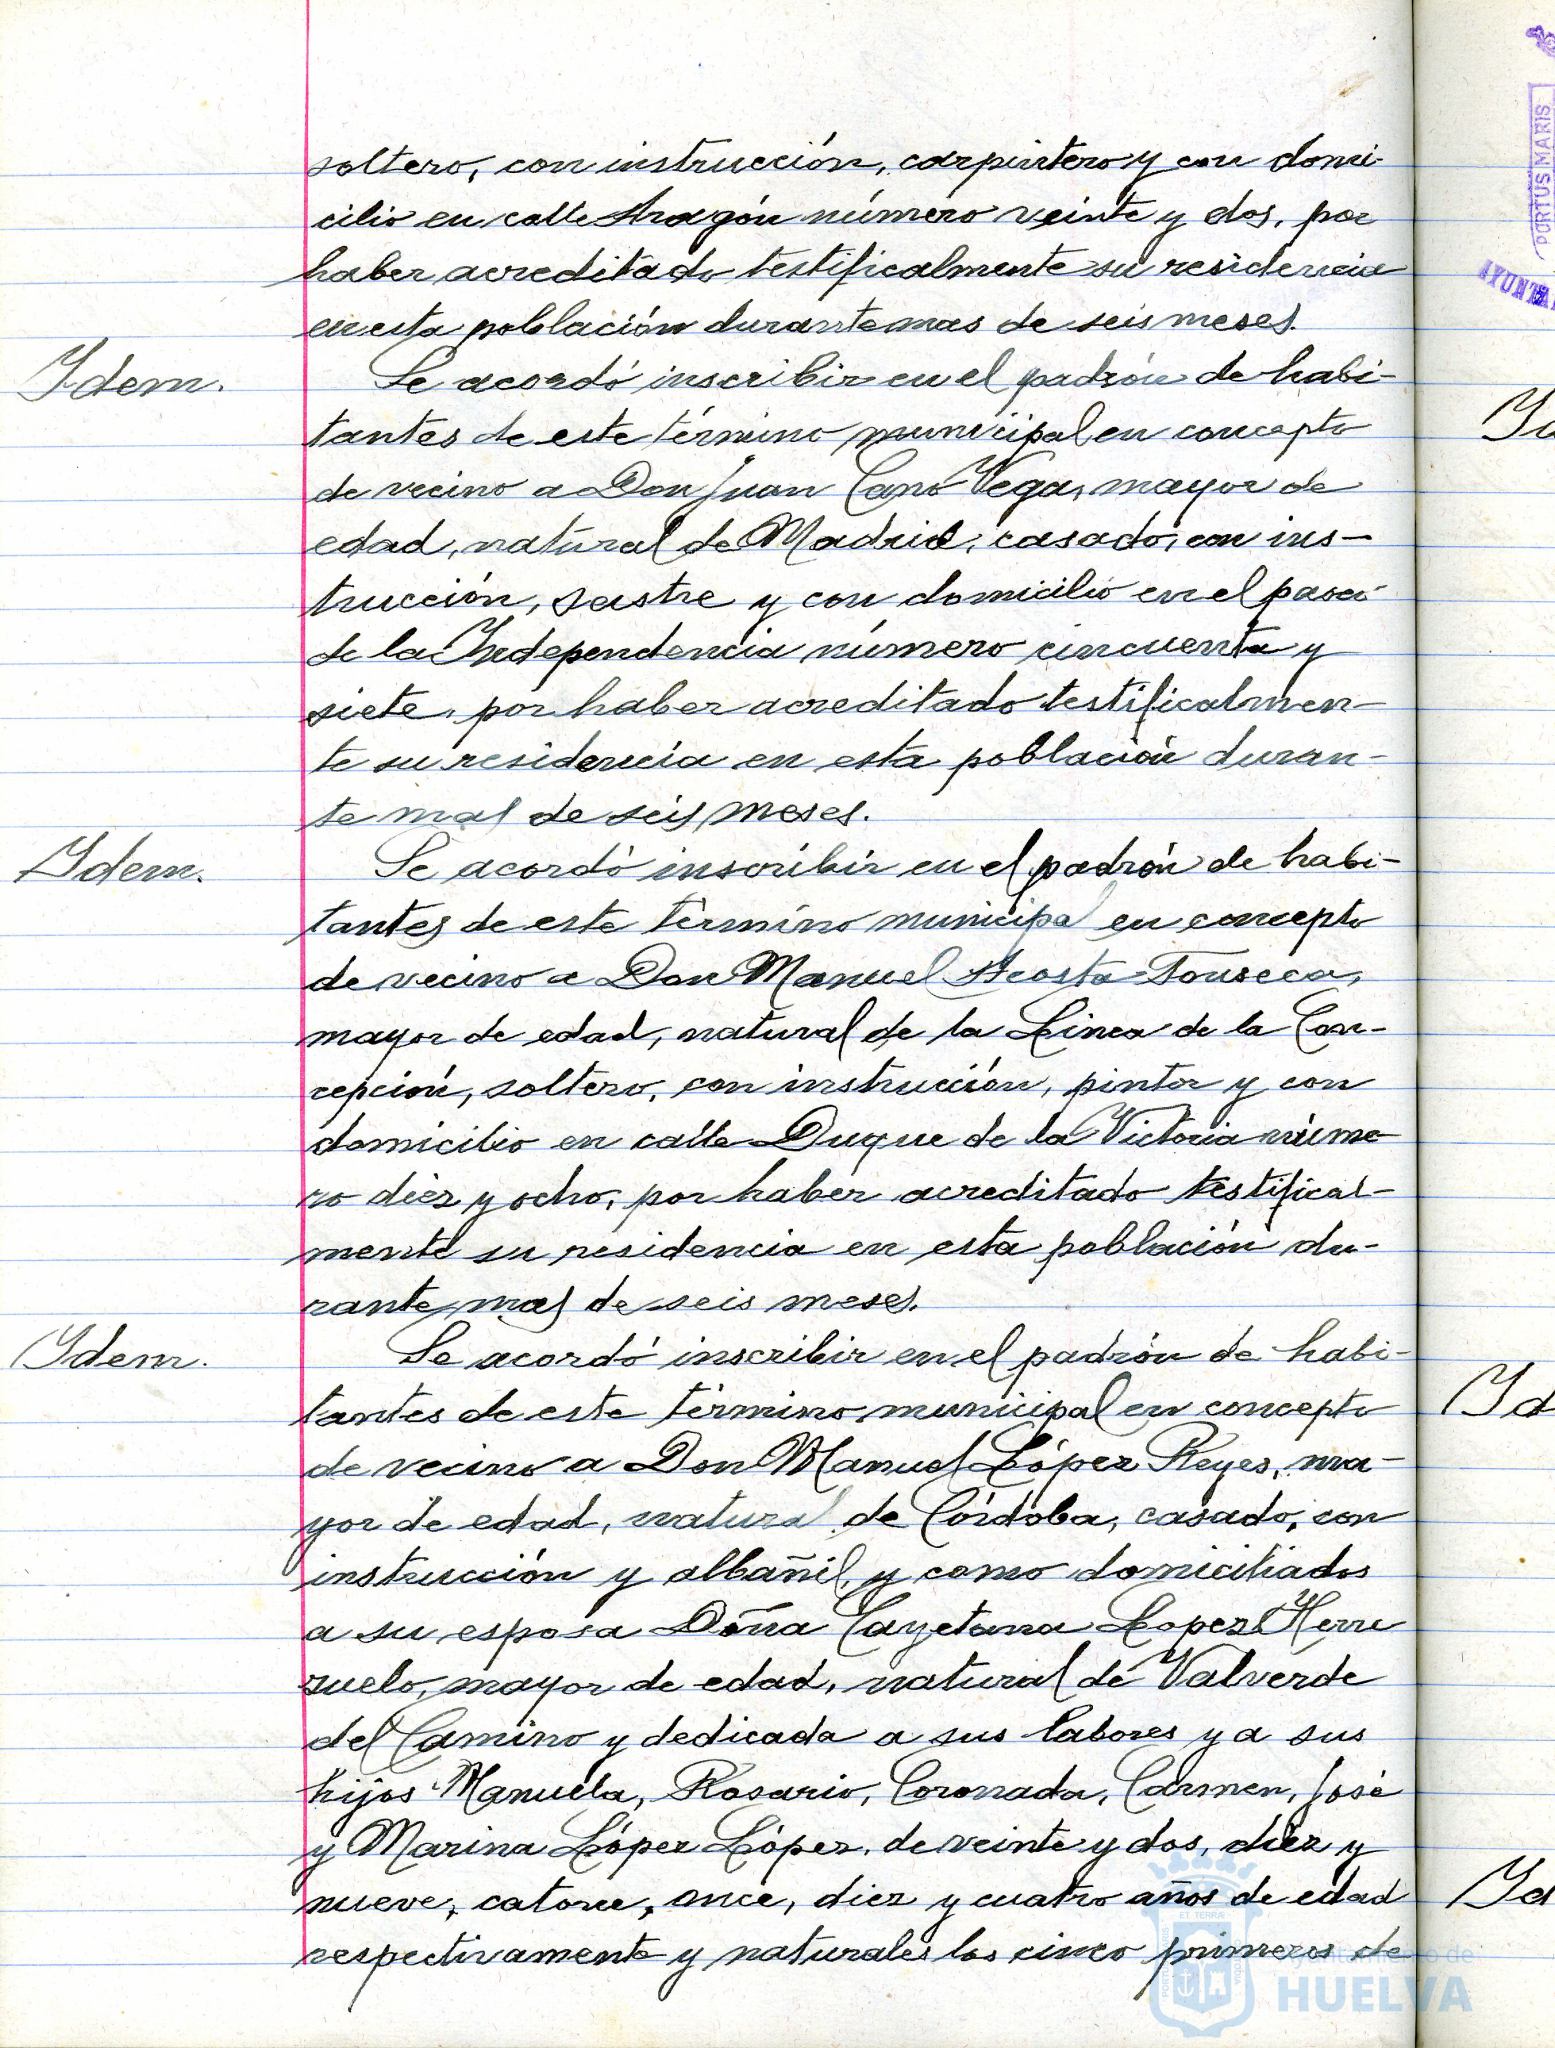 soltero, con instrucción, carpintero y con domi-
cilio en calle Aragón número veinte y dos, por
haber acreditado testificalmente su residencia
en esta población durante mas de seis meses.
Idem.
Se acordó inscribir en el padrón de habi-
tantes de este término municipal en concepto
de vecino a Don Juan Cano Vega, mayor de
edad, natural de Madrid, casado, con ins-
trucción, sastre y con domicilio en el paseo
de la Independencia número cincuenta y
siete, por haber acreditado testificalmen-
te su residencia en esta población duran-
te mas de seis meses.
Idem.
Se acordó inscribir en el padrón de habi-
tantes de este término municipal en concepto
de vecino a Don Manuel Acosta Fonseca,
mayor de edad, natural de la Linea de la Con-
cepción, soltero, con instrucción, pintor y con
domicilio en calle Duque de la Victoria núme
ro diez y ocho, por haber acreditado testifical-
mente su residencia en esta población du-
rante mas de seis meses.
Idem.
Se acordó inscribir en el padrón de habi-
tantes de este término municipal en concepto
de vecino a Don Manuel López Reyes, ma-
yor de edad, natural de Córdoba, casado, con
instrucción y albañil, y como domiciliados
a su esposa Doña Cayetana Lopez Herre
zuelo, mayor de edad, natural de Valverde
del Camino y dedicada a sus labores y a sus
hijos Manuela, Rosario, Coronada, Carmen, José
y Marina López López, de veinte y dos, diez y
nueve, catorce, once, diez y cuatro años de edad
respectivamente y naturales los cinco primeros de
PORTUS MARIS
AYUNTA
Id
Id
Id
Ayuntamiento de
HUELVA